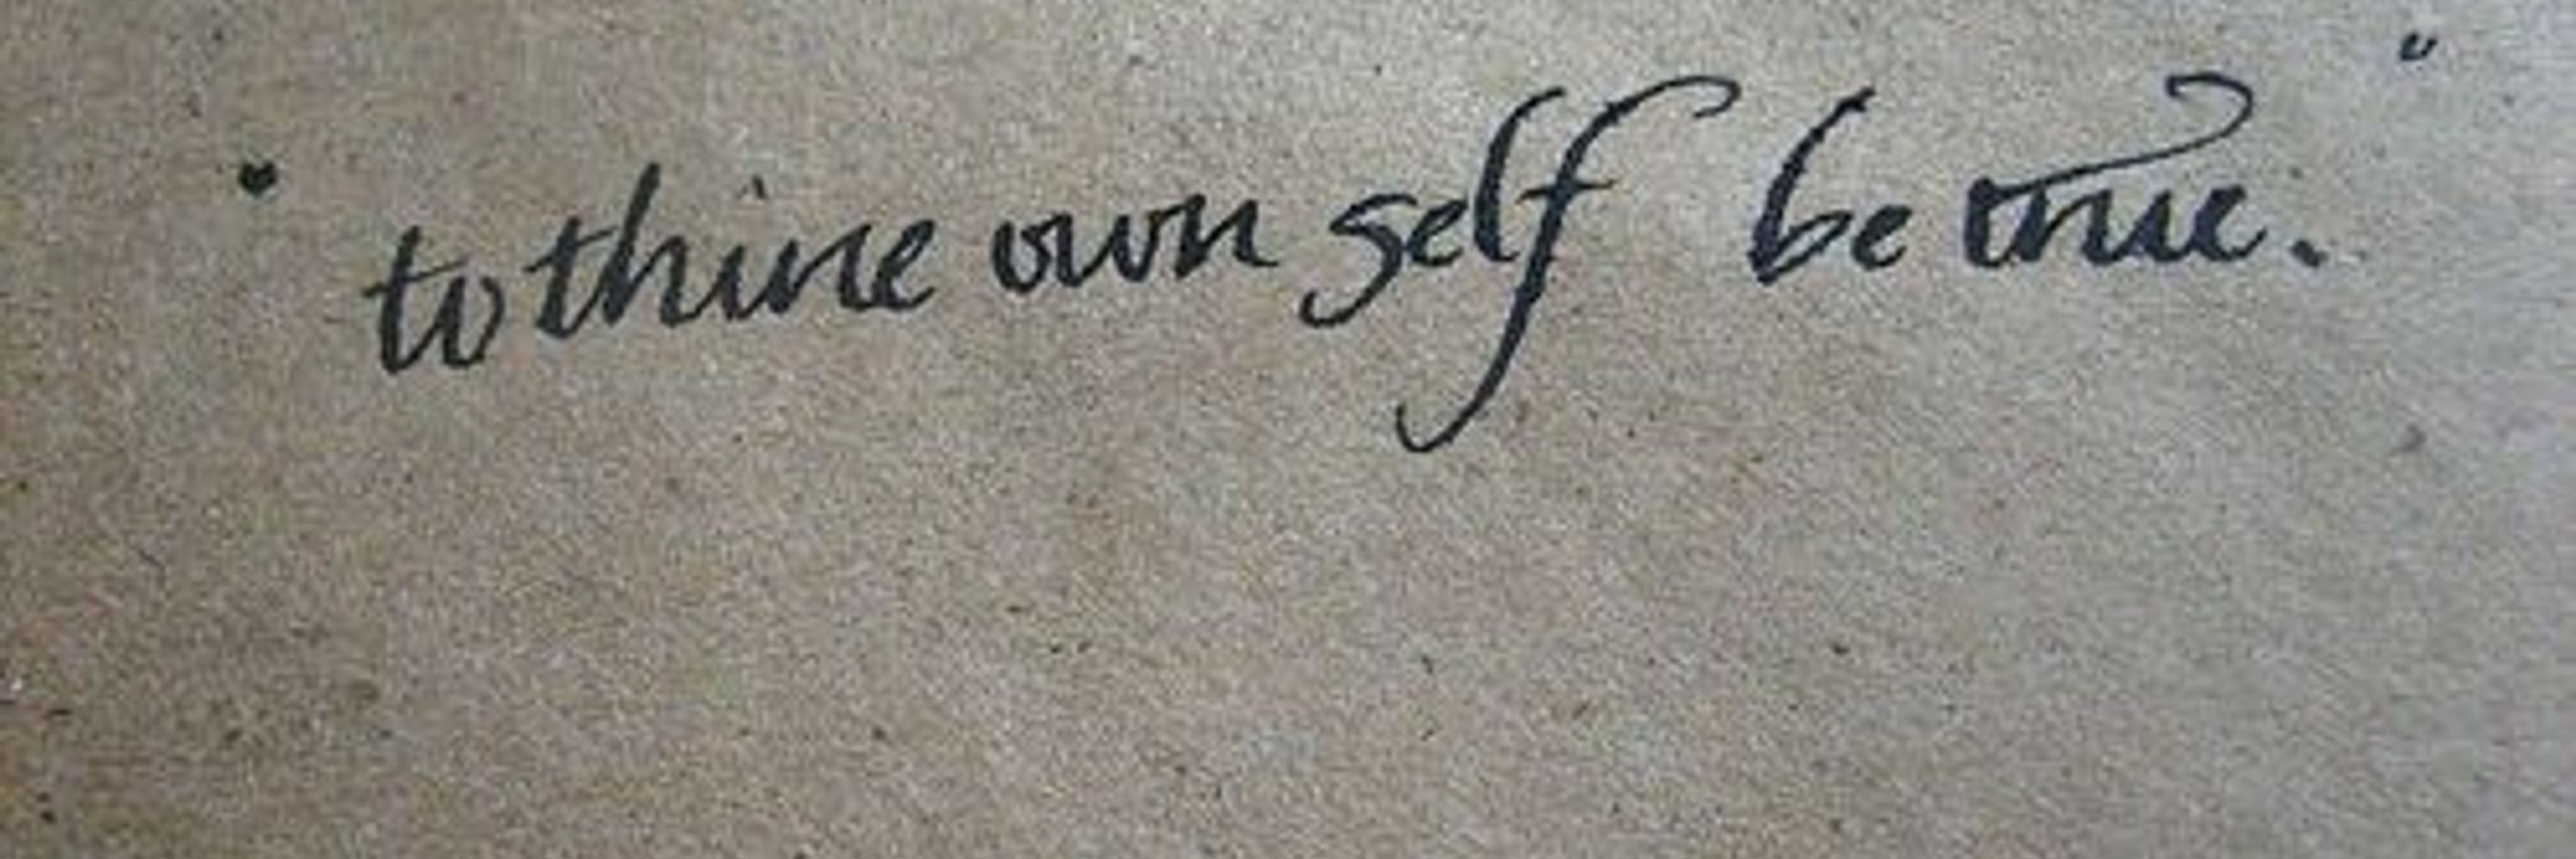 "to thine own self be true."